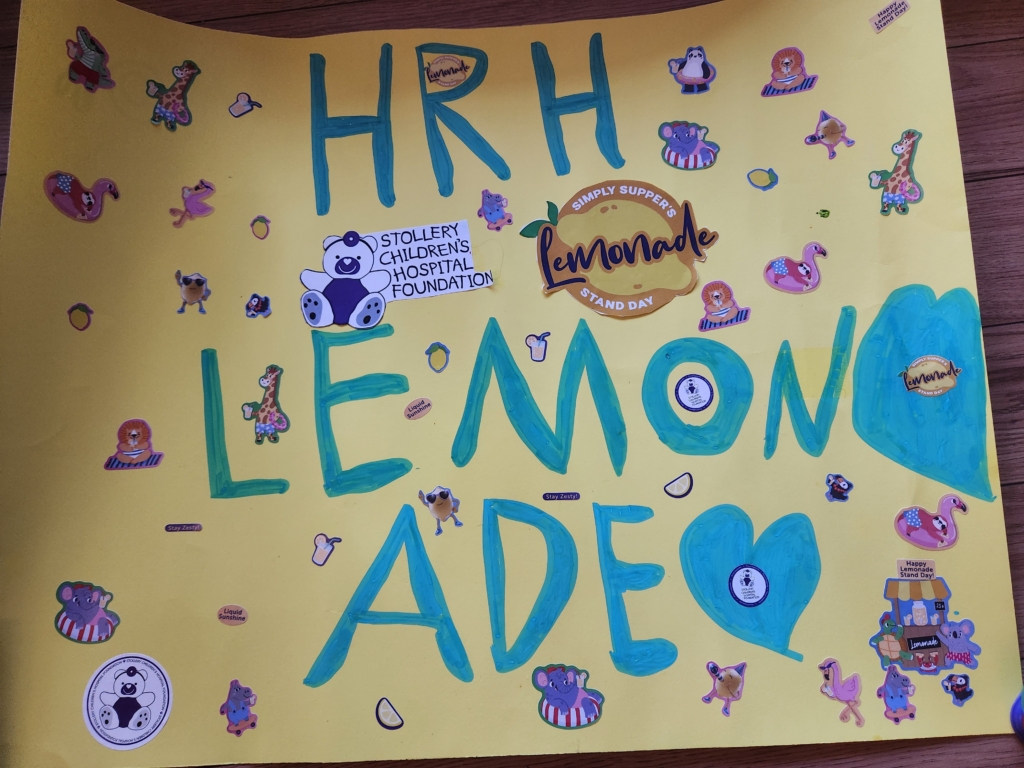 Happy
Lemonade
Stand Day!
HRH
Lemonade
STOLLERY
CHILDREN'S
HOSPITAL
FOUNDATION
SIMPLY SUPPER'S
Lemonade
STAND DAY
LEMON
Lemonade
Liquid
Sunshine
Stay Zesty!
Stay Zesty!
ADE
Happy
Lemonade
Stand Day!
Lemonade
Liquid
Sunshine